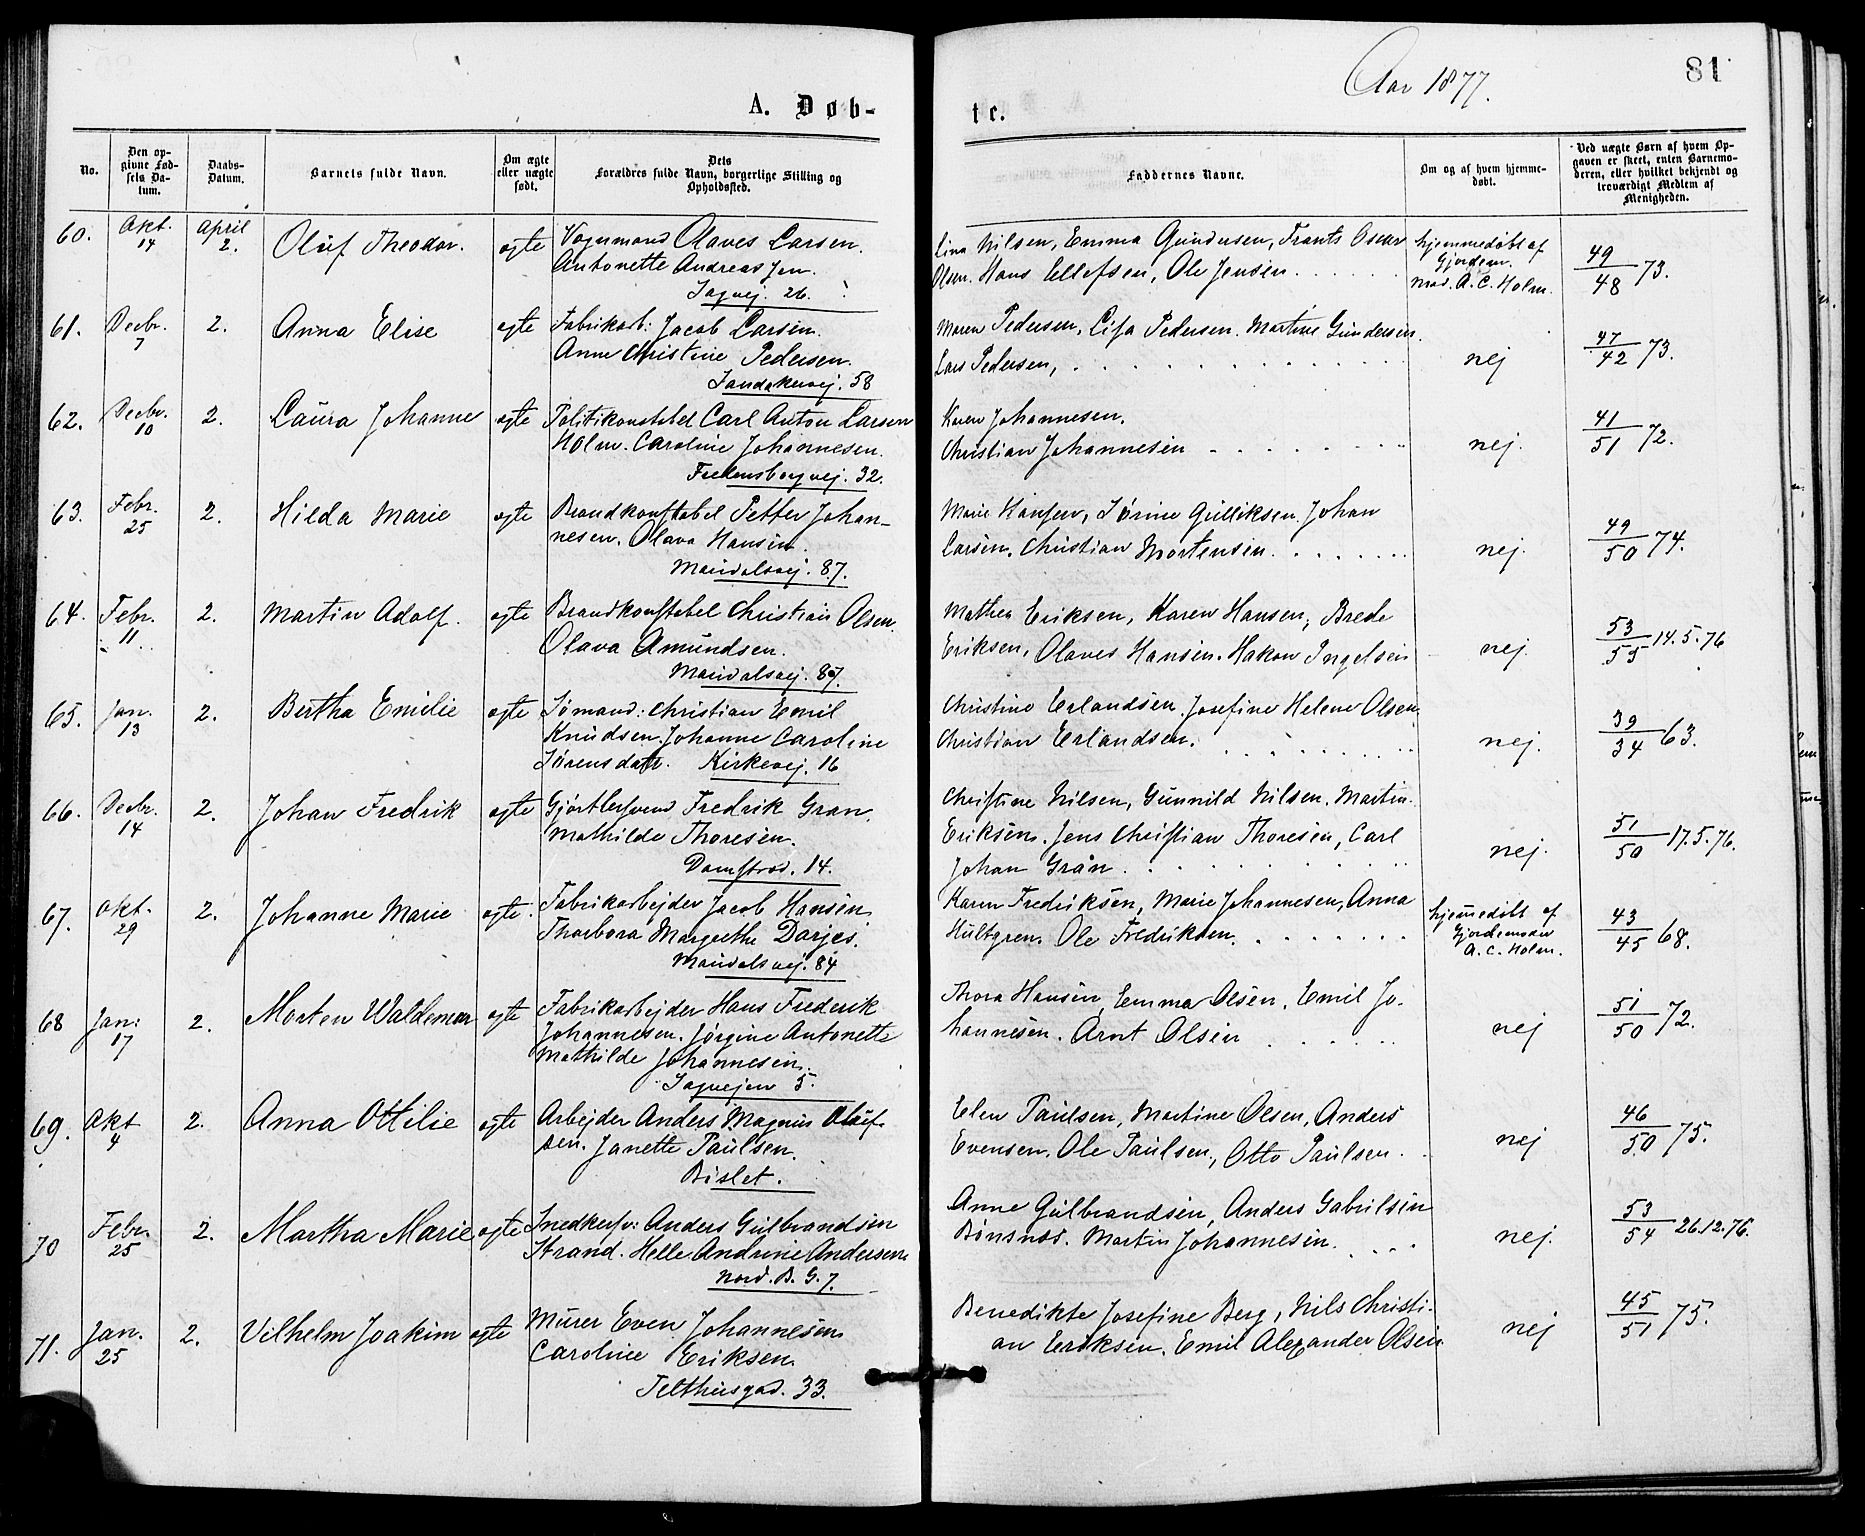 Aar 1877.
81
A. Døb-
te.
No.
Den op-
givne Fød-
sels Da-
tum.
Daabs-
Datum.
Barnets fulde Navn.
Om ægte
eller uægte
født.
Dets
Forældres fulde Navn, borgerlige Stilling og
Opholdssted.
Faddernes Navne.
Om og af hvem hjemme-
døbt.
Ved uægte Børn af hvem Op-
gaven er skeet, enten Barnemo-
deren, eller hvilket bekjendt og
troværdigt Medlem af
Menigheden.
60. Okt. 14 April 2. Oluf Theodor. egte
Vognmand Olaves Larsen.
Antonette Andreasen.
Sagvej. 26.
Lina Nilsen, Emma Gundersen, Frants Oscar
Olsen. Hans Ellefsen, Ole Jensen.
hjemmedøbt af
Gjordem.
Mad. A. C. Holm.
49/48 73.
61. Decbr. 7 2. Anna Elise egte
Fabrikarb: Jacob Larsen.
Anne Christine Pedersen.
Sandakervej. 58
Maren Pedersen, Lisa Pedersen. Martine Gundersen.
Lars Pedersen,
nej
47/42 73.
62. Decbr. 10 2. Laura Johanne egte
Politikonstabel Carl Anton Larsen
Holm. Caroline Johannesen.
Fredensborgvej. 32.
Karen Johannesen.
Christian Johannesen
nej.
41/51 72.
63. Febr. 25 2. Hilda Marie egte
Brandkonstabel Petter Johan-
nesen. Olava Hansen.
Maridalsvej. 87.
Marie Hansen, Sørine Gulliksen. Johan
Larsen. Christian Mortensen.
nej.
49/50 74.
64. Febr. 11 2. Martin Adolf. egte
Brandkonstabel Christian Olsen.
Olava Amundsen.
Maridalsvej. 87.
Mathea Eriksen, Karen Hansen, Brede
Eriksen, Olaves Hansen. Hakon Ingelsen
nej.
53/55 14.5.76
65. Jan. 13 2. Bertha Emilie egte
Sømand: Christian Emil
Knudsen. Johanne Caroline
Sørensdatr. Kirkevej. 16
Christine Erlandsen. Josefine Helene Olsen.
Christian Erlandsen.
nej.
39/34 63.
66. Decbr. 14 2. Johan Fredrik egte
Gjørtlersvend Fredrik Gran.
Mathilde Thoresen.
Damstræd. 14.
Christine Nilsen, Gunnild Nilsen. Martin
Eriksen. Jens Christian Thoresen, Carl
Johan Gran.
nej.
51/50 17.5.76.
67. Okt. 29 2. Johanne Marie egte.
Fabrikarbejder Jacob Hansen
Thorbora Margrethe Darjes.
Maridalsvej. 84
Karen Fredriksen, Marie Johannesen, Anna
Hultgren. Ole Fredriksen.
hjemmedøbt af
Gjordemoder
A. C. Holm.
43/45 68.
68 Jan: 17 2. Morten Waldemar egte
Fabrikarbejder Hans Frederik
Johannesen. Jørgine Antonette
Mathilde Johannesen.
Sagvejen 5.
Thora Hansen, Emma Olsen, Emil Jo-
hannesen. Arnt Olsen
nej
51/50 72.
69. Okt 4 2. Anna Ottilie egte
Arbejder Anders Magnus Oluf-
sen. Janette Paulsen.
Bislet.
Elen Paulsen, Martine Olsen, Anders
Evensen. Ole Paulsen, Otto Paulsen.
nej
46/50 75.
70 Febr. 25 2. Martha Marie egte
Snedkersv: Anders Gulbrandsen
Strand. Helle Andrine Andersen
Nord. B. G. 7.
Anne Gulbrandsen, Anders Gabrilsen
Bønsnæs. Martin Johannesen.
nej.
53/54 26.12.76.
71. Jan. 25 2. Vilhelm Joakim egte
Murer Even Johannesen
Caroline Eriksen.
Telthusgad. 33.
Benedikte Josefine Berg, Nils Christi-
an Eriksen. Emil Alexander Olsen
nej
45/51 75.